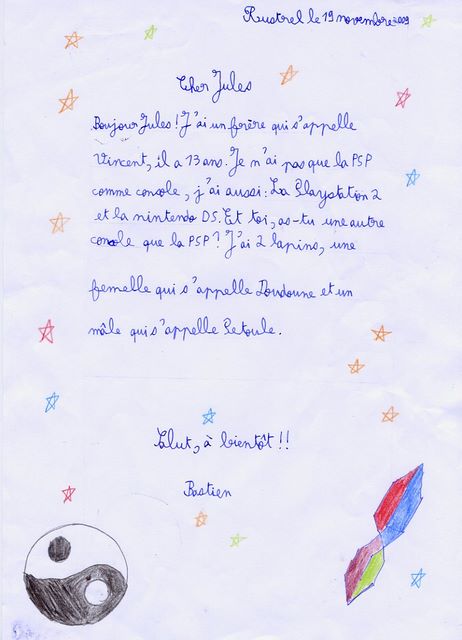 Rustrel le 19 novembre 2009
Cher Jules
Bonjour Jules ! J'ai un frère qui s'appelle
Vincent, il a 13 ans. Je n'ai pas que la PSP
comme console, j'ai aussi : La Playstation 2
et la nintendo DS. Et toi, as-tu une autre
console que la PSP ? J'ai 2 lapins, une
femelle qui s'appelle Doudoune et un
mâle qui s'appelle Petoule.
Salut, à bientôt !!
Bastien